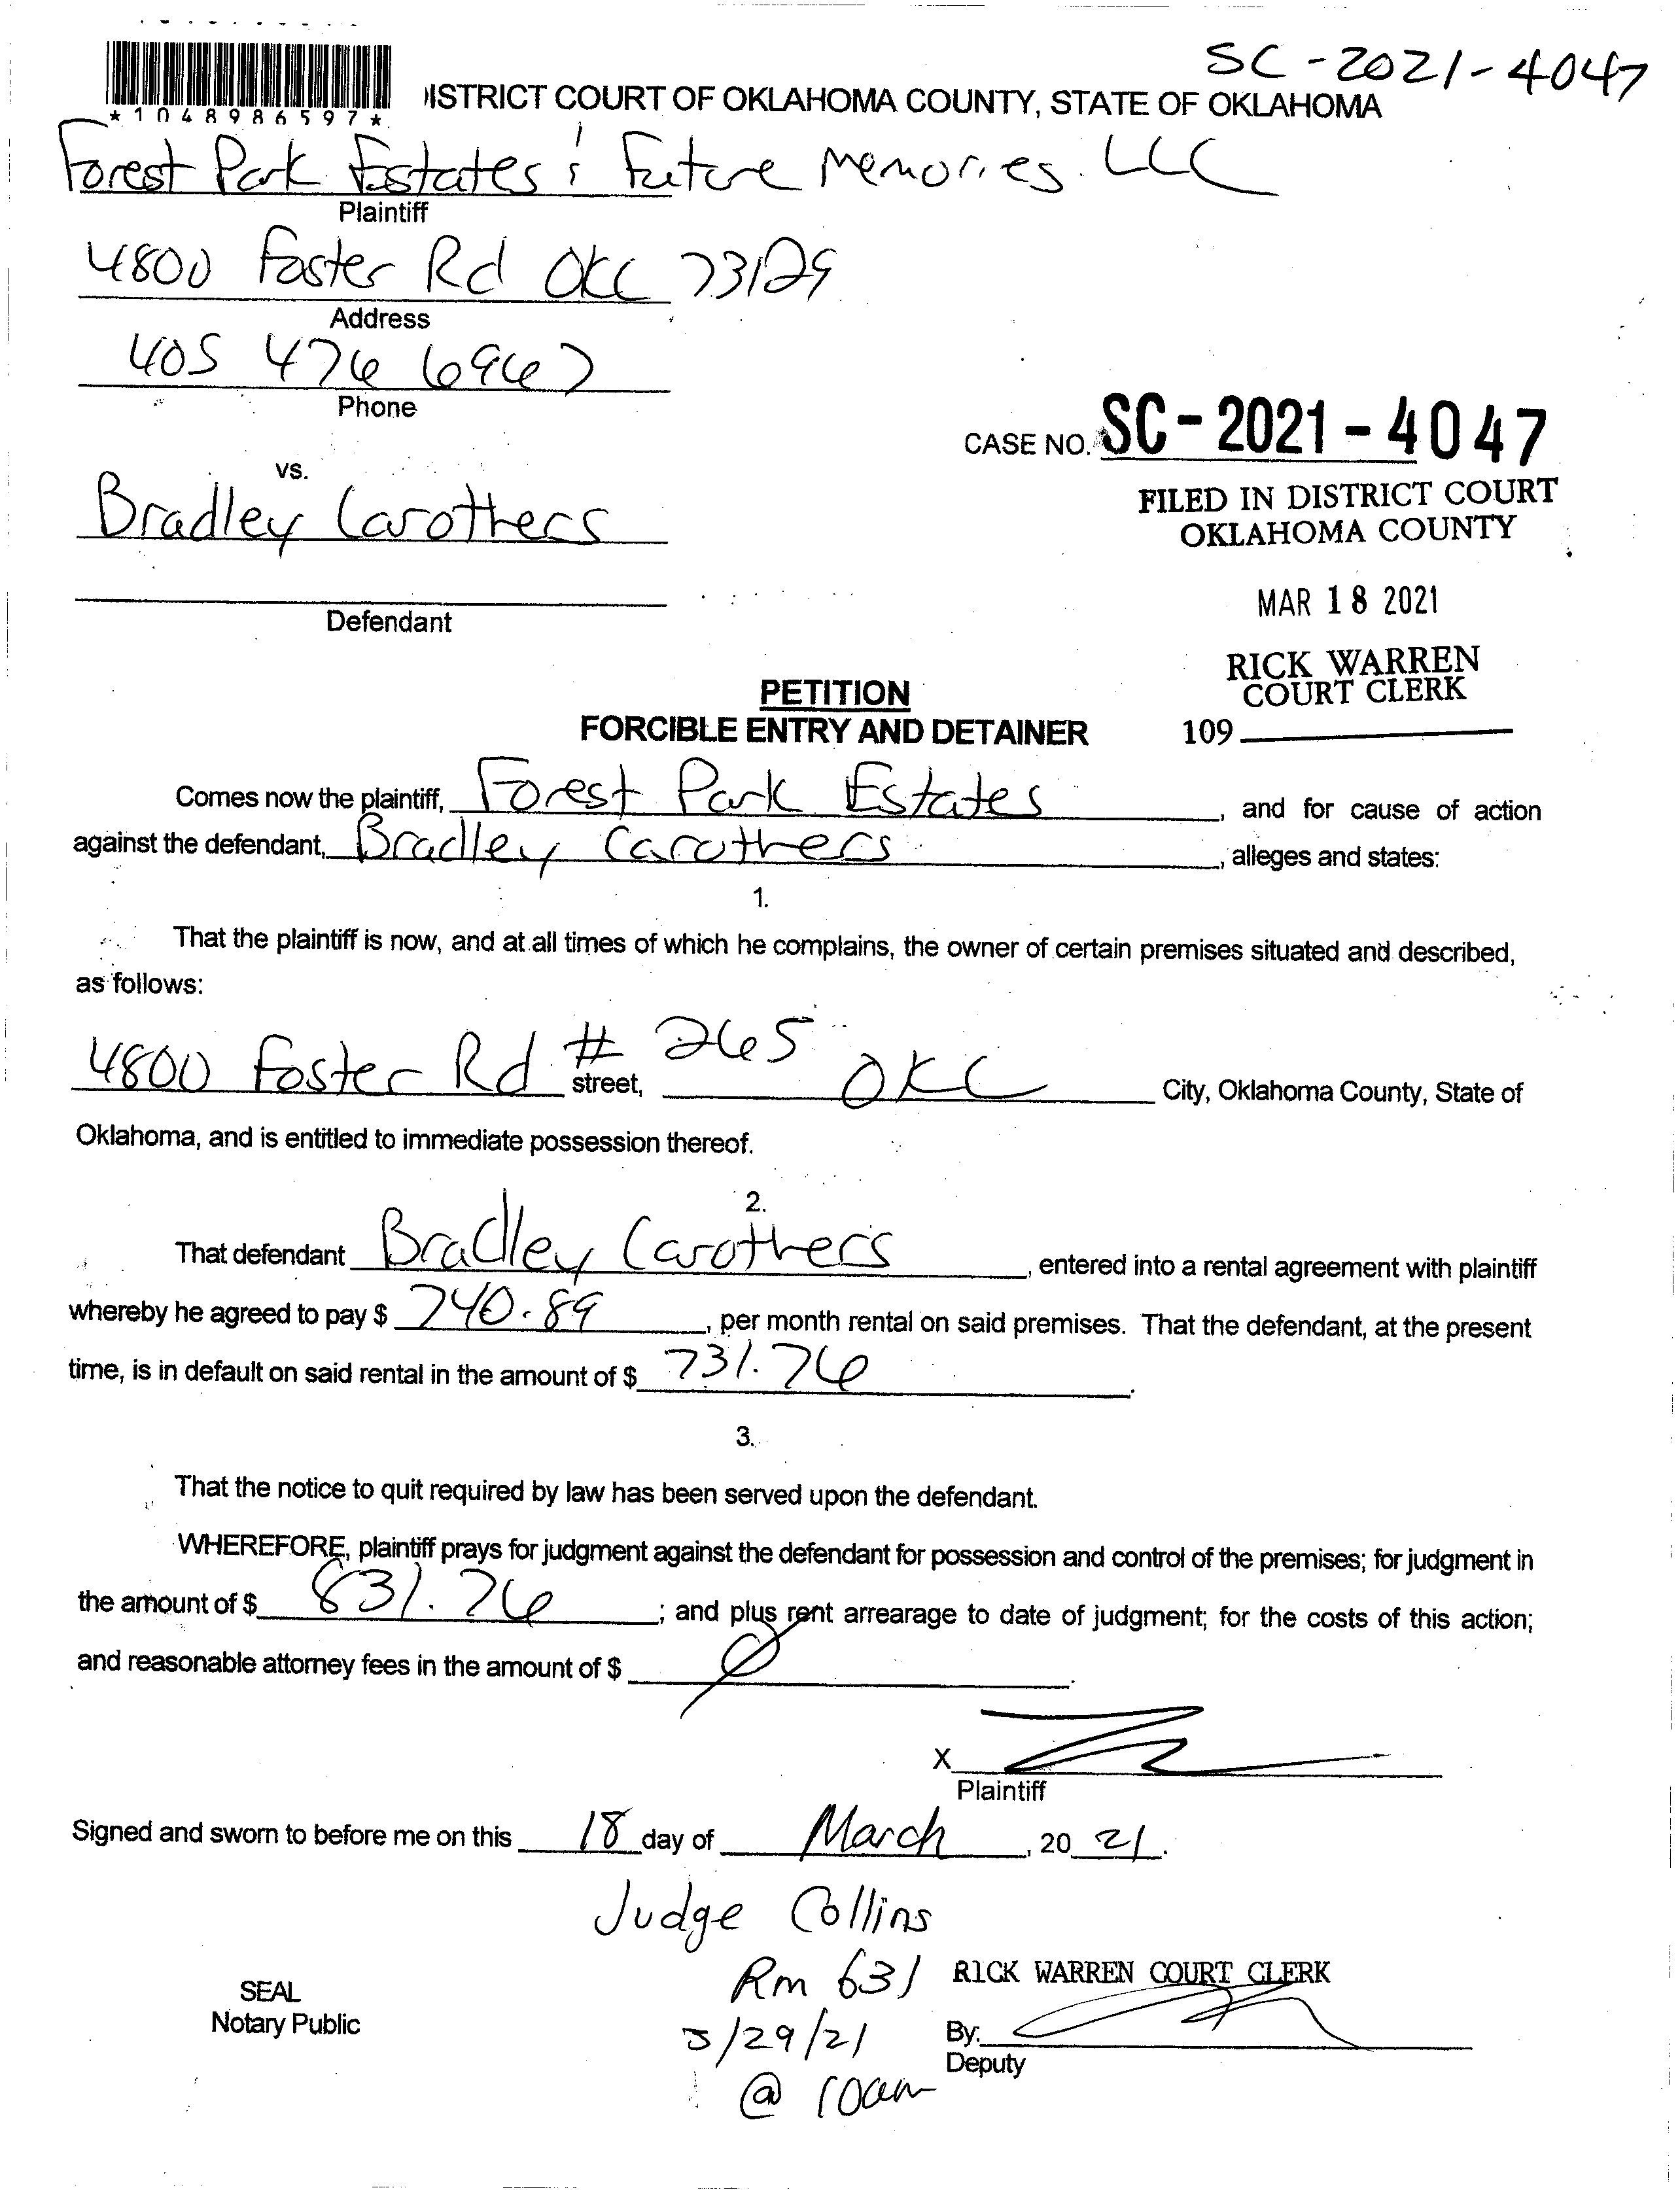 SC-2021-4047
*1048986597*
ISTRICT COURT OF OKLAHOMA COUNTY, STATE OF OKLAHOMA
Forest Park Estates ; Future Memories LLC
Plaintiff
4800 Foster Rd OKC 73129
Address
405 476 6967
Phone
CASE NO. SC-2021-4047
vs.
FILED IN DISTRICT COURT
OKLAHOMA COUNTY
Bradley Carothers
MAR 18 2021
Defendant
RICK WARREN
COURT CLERK
PETITION
FORCIBLE ENTRY AND DETAINER
109
Comes now the plaintiff, Forest Park Estates, and for cause of action
against the defendant, Bradley Carothers, alleges and states:
1.
That the plaintiff is now, and at all times of which he complains, the owner of certain premises situated and described,
as follows:
4800 Foster Rd # 265 street, OKC City, Oklahoma County, State of
Oklahoma, and is entitled to immediate possession thereof.
2.
That defendant Bradley Carothers, entered into a rental agreement with plaintiff
whereby he agreed to pay $ 740.89, per month rental on said premises. That the defendant, at the present
time, is in default on said rental in the amount of $ 731.76.
3.
That the notice to quit required by law has been served upon the defendant.
WHEREFORE, plaintiff prays for judgment against the defendant for possession and control of the premises; for judgment in
the amount of $ 831.76; and plus rent arrearage to date of judgment; for the costs of this action;
and reasonable attorney fees in the amount of $ Ø.
X
Plaintiff
Signed and sworn to before me on this 18 day of March, 20 21.
Judge Collins
Rm 631
RICK WARREN COURT CLERK
SEAL
Notary Public
3/29/21
By:
Deputy
@ 10am